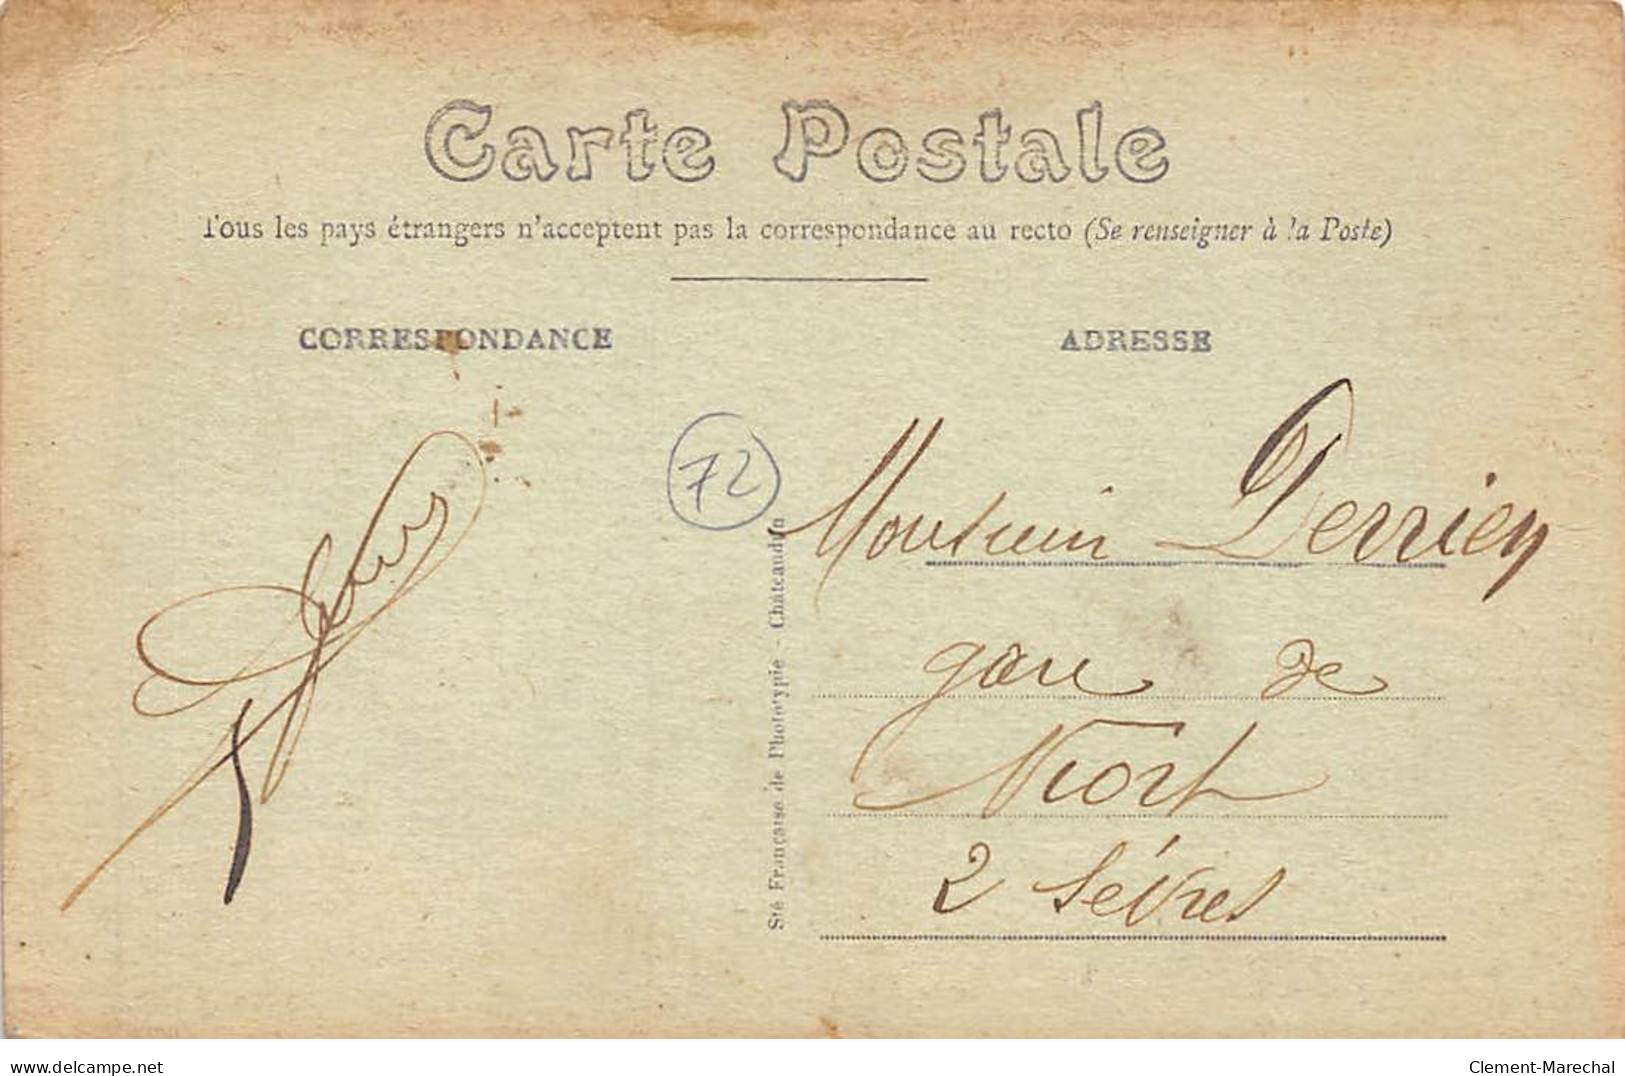 Carte Postale
Tous les pays étrangers n'acceptent pas la correspondance au recto (Se renseigner à la Poste)
CORRESPONDANCE
ADRESSE
72
Monsieur Derrien
gare de
Niort
2 Sèvres
Sté Française de Phototypie - Châteaudun
delcampe.net
Clement-Marechal